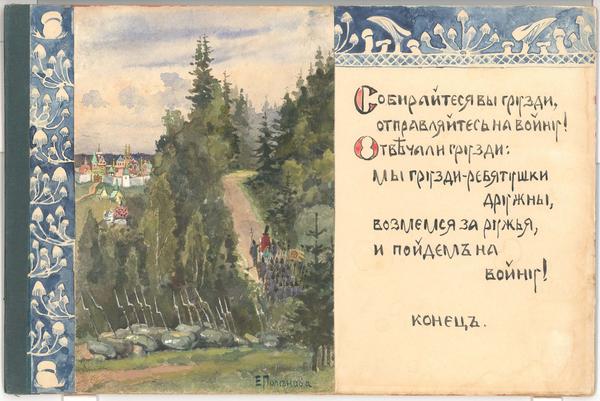 Собирайтеся вы грузди,
отправляйтесь на войну!
Отвѣчали грузди:
мы грузди-ребятушки
дружны,
возмемся за ружья,
и пойдемъ на
войну!
конецъ.
ЕПолѣнова